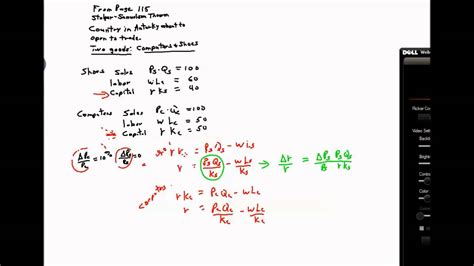 From Page 115
Stolper-Samuelson Theorem
Country in Autarky about to
open to trade.
Two goods: Computers & Shoes
Shoes Sales Ps·Qs = 100
Labor wLs = 60
Capital rKs = 40
Computers Sales Pc·Qc = 100
Labor wLc = 50
Capital rKc = 50
ΔPc/Pc = 10% ΔPs/Ps = 0
rKs = PsQs - wLs
r = PsQs/Ks - wLs/Ks ⇒ Δr/r = ΔPs PsQs/Ps rKs
computers rKc = PcQc - wLc
r = PcQc/Kc - wLc/Kc
DELL